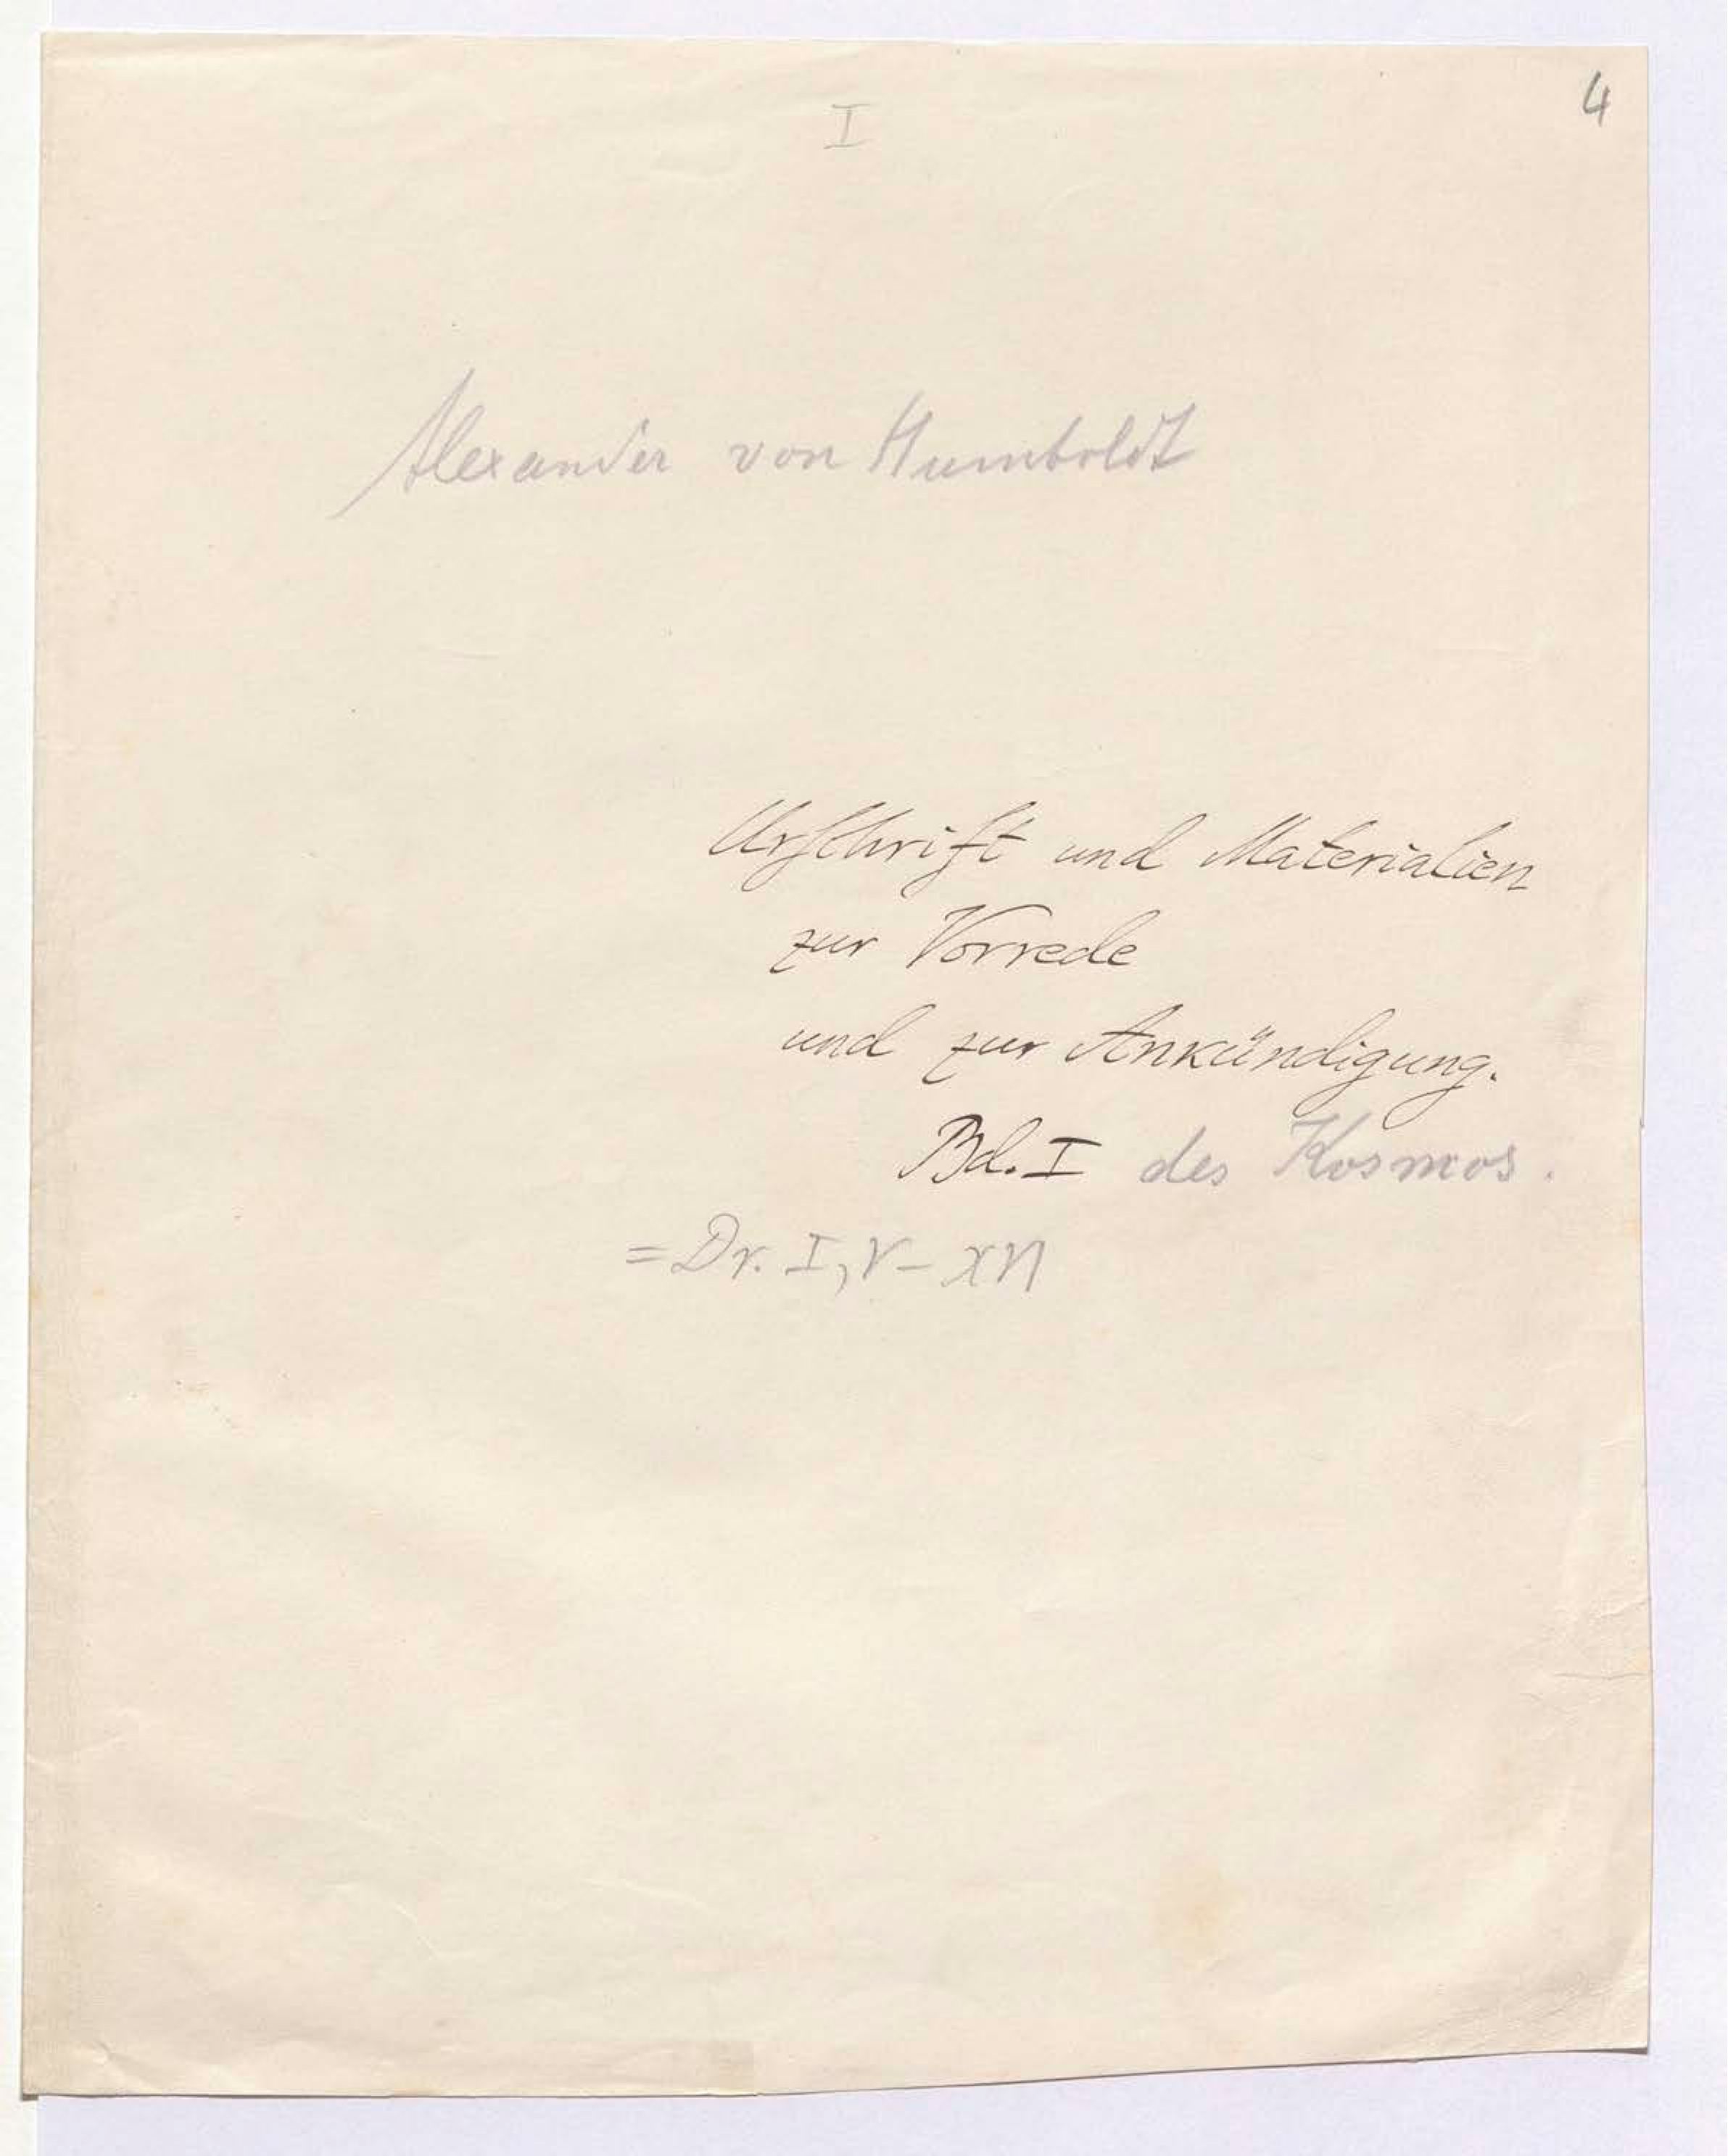 I
4
Alexander von Humboldt
Urschrift und Materialien
zur Vorrede
und zur Ankündigung.
Bd. I des Kosmos.
= Dr. I, V – XVI